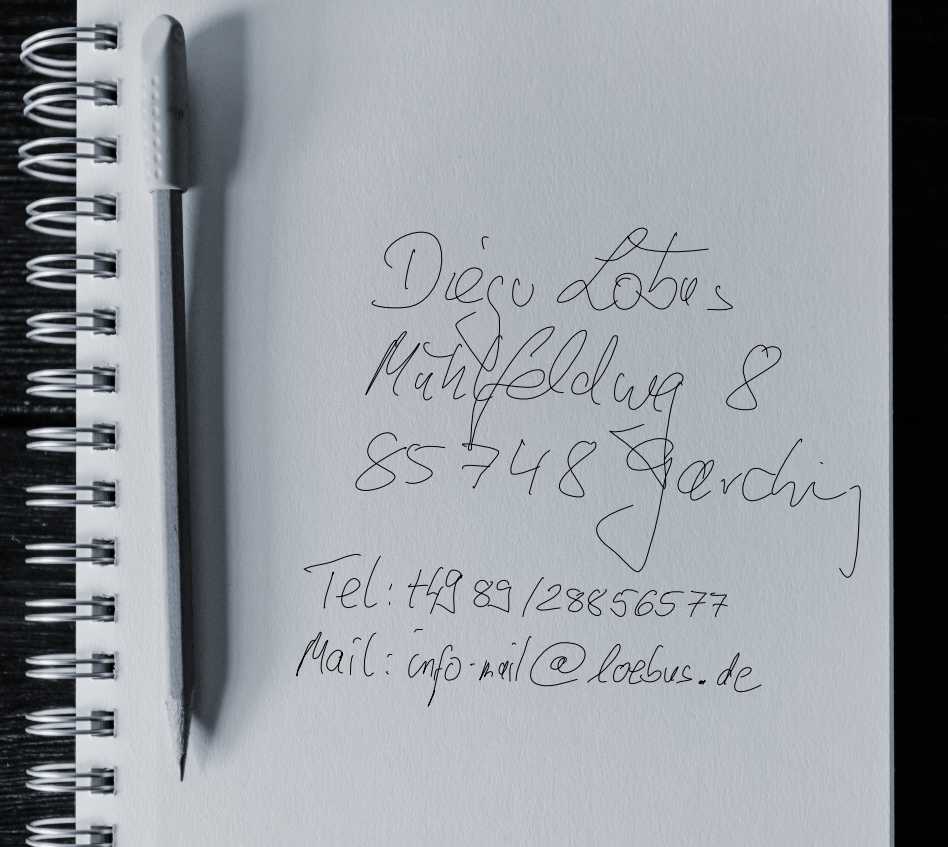 Diego Lobus
Mühlfeldweg 8
85748 Garching
Tel: +49 89/28856577
Mail: info-mail@loebus.de